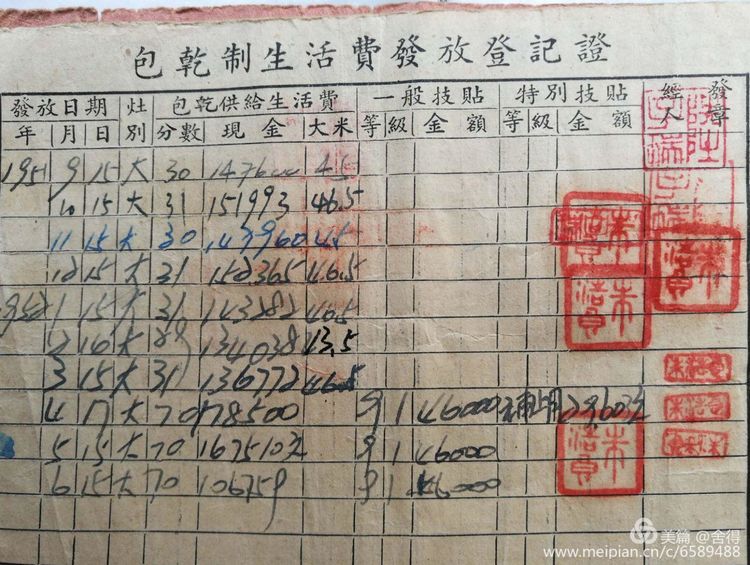 包乾制生活費發放登記證
發放日期 灶別 包乾供給生活費 一般技貼 特別技貼 經人 發章
年 月 日 分數 現金 大米 等 級 金額 等 級 金額
1951 9 15 大 30 45
10 15 大 31 151993 46.5
11 15 大 30 143960 45
12 15 大 31 152365 46.5
1952 1 15 大 31 143282 46.5
2 16 大 29 134038 43.5
3 15 大 31 136772 46.5
4 17 大 70 178500 9 1 46000 29603元
5 15 大 70 167510元 9 1 46000
6 15 大 70 106759 9 1 46000
美篇 @舍得
www.meipian.cn/c/6589488